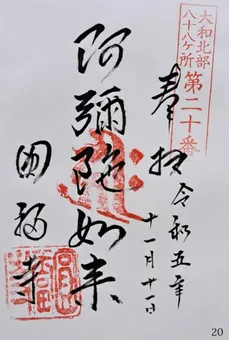 大和北部
八十八ヶ所
第二十番
奉拝
令和五年
十一月廿一日
阿彌陀如来
圓福寺
20